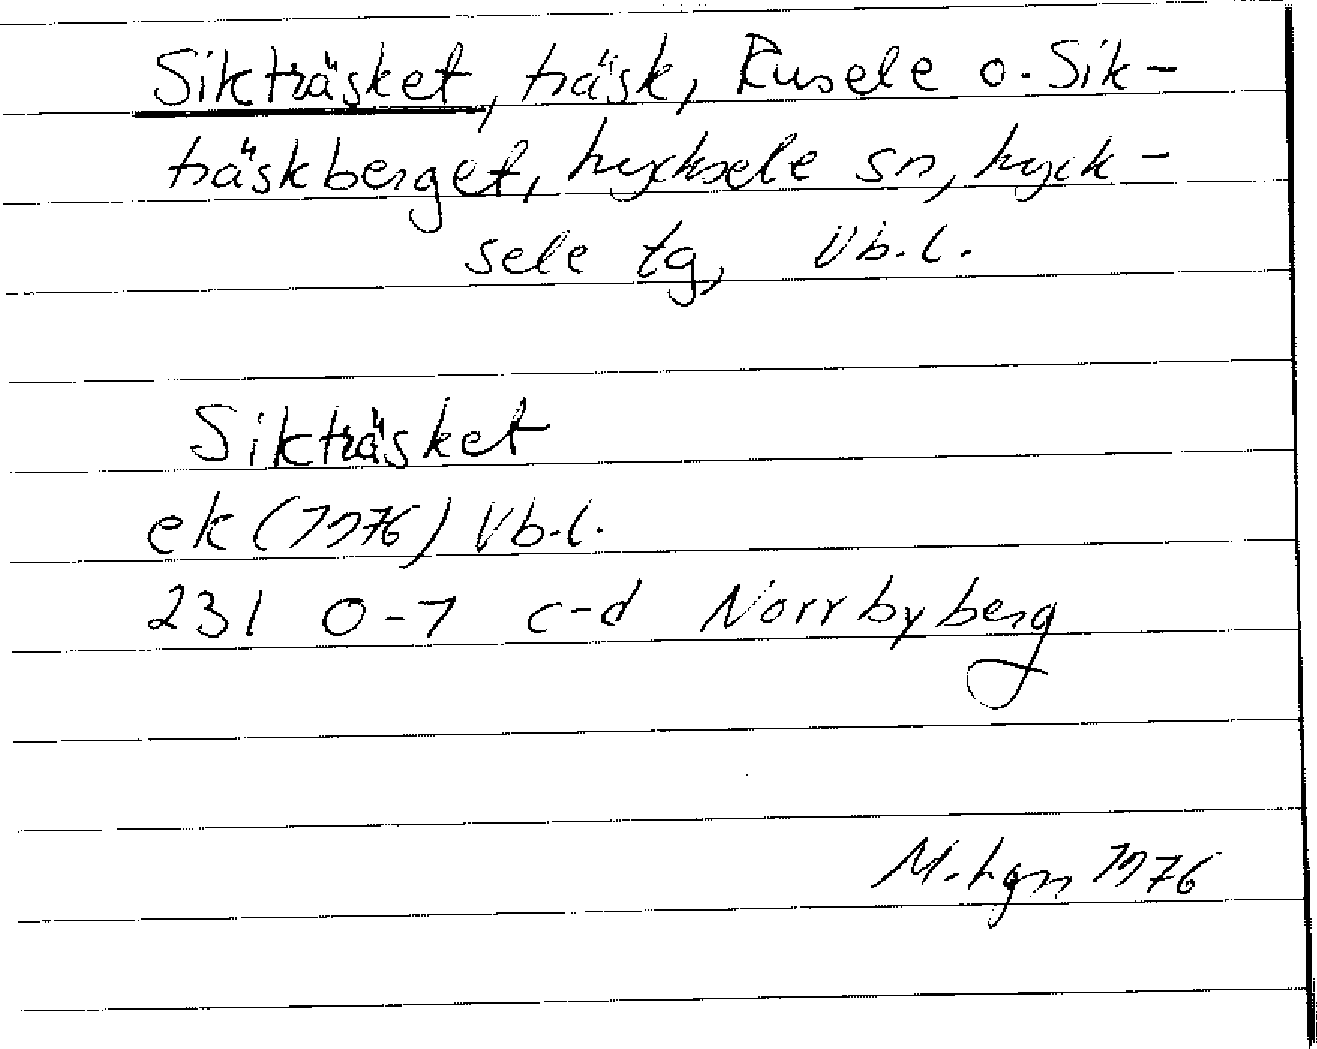 Sikträsket, träsk, Rusele o. Sik-
träskberget, Lycksele sn, Lyck-
sele tg, Vb.l.
Sikträsket
ek (1976) Vb.l.
23I 0-1 c-d Norrbyberg
M. Lgn 1976